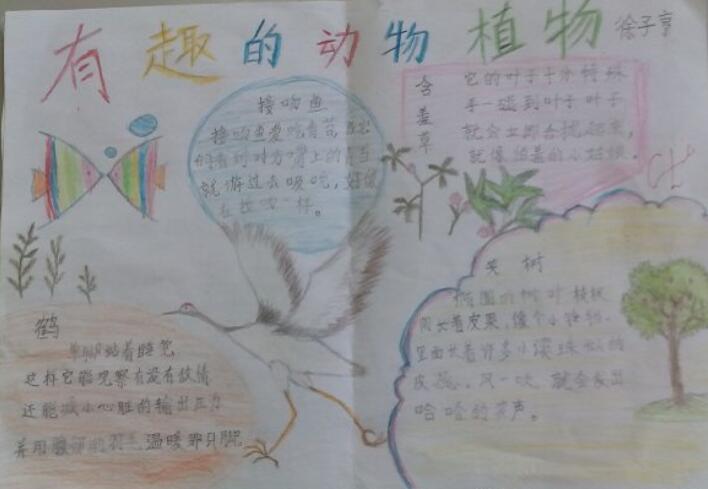 有趣的动物植物
徐子亨
接吻鱼
接吻鱼爱吃青苔
们看到对方嘴上的青苔
就游过去吸吮，好像
在接吻一样。
含羞草
它的叶子十分特殊
手一碰到叶子叶子
就会立即合拢起来，
就像害羞的小姑娘。
鹤
单脚站着睡觉
这样它能观察有没有敌情
还能减小心脏的输出压力
并用腹部的羽毛温暖那只脚。
笑树
树叶
长着皮果，像个小铃铛，
里面长着许多小滚珠似的
皮蕊，风一吹就会发出
哈哈的笑声。